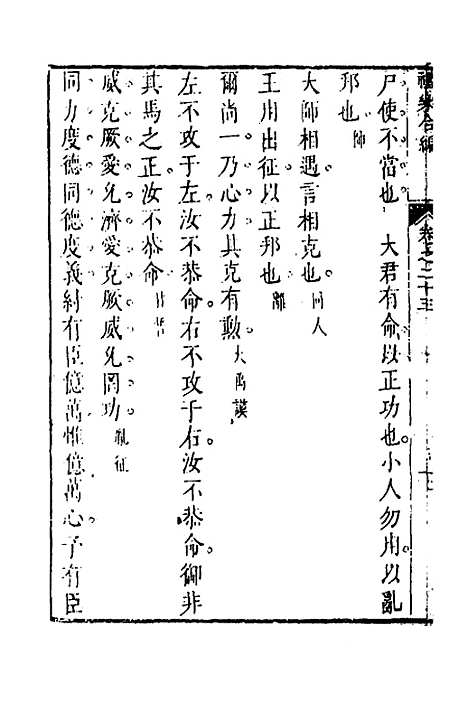 禮樂合編　卷之二十三
尸使不當也　大君有命以正功也小人勿用以亂
邦也師
大師相遇言相克也同人
王用出征以正邦也離
爾尚一乃心力其克有勲大禹謨
左不攻于左汝不恭命右不攻于右汝不恭命御非
其馬之正汝不恭命甘誓
威克厥愛允濟愛克厥威允罔功胤征
同力度德同德度義紂有臣億萬惟億萬心予有臣